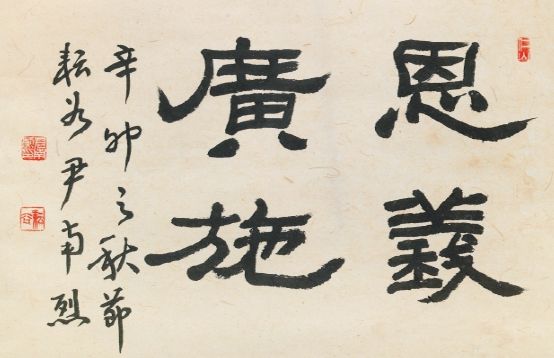 恩義
廣施
辛卯之秋節
耘谷尹烈